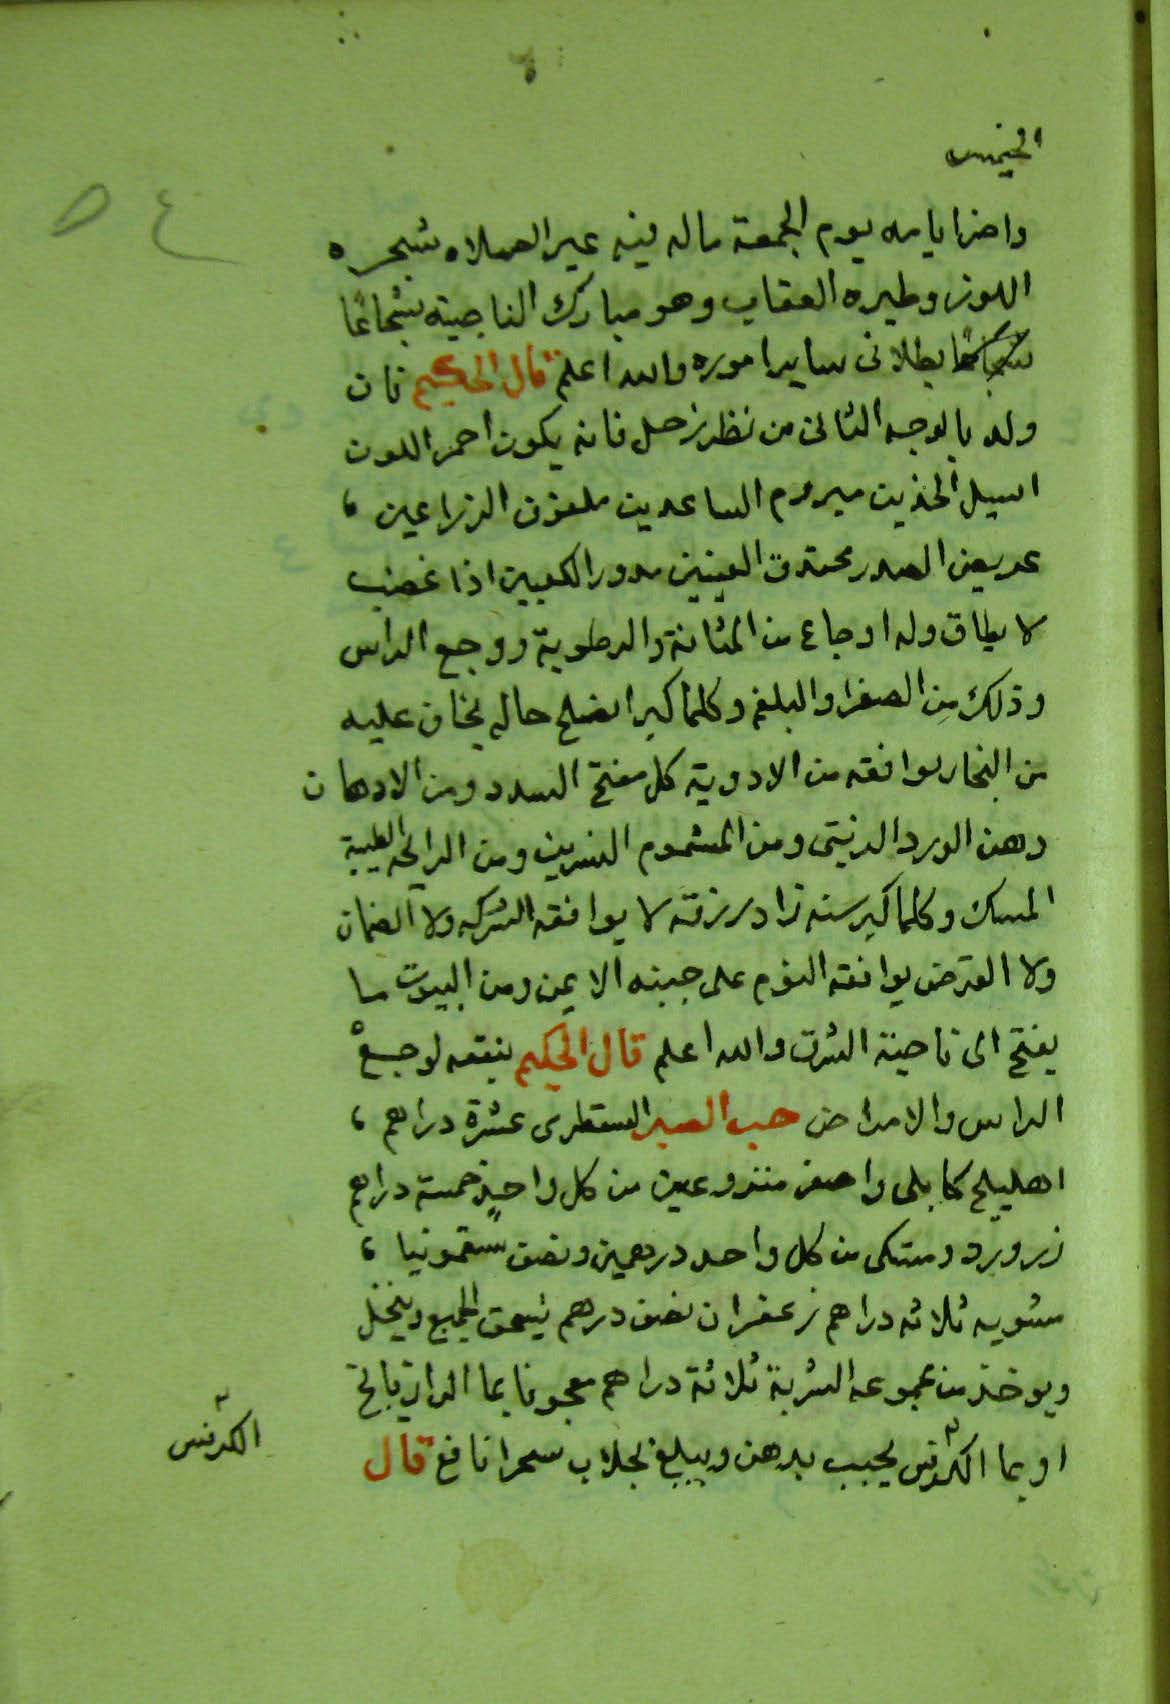 الخميس
واضر ايامه يوم الجمعة ماله فيه غير الصلاه شجره
اللوز وطيره العقاب وهو مبارك الناصية شجاعًا
بطلا فى ساير اموره والله اعلم قال الحكيم فان
ولد بالوجه الثانى من نظر زحل فانه يكون احمر اللون
اسيل الخدين مبروم الساعدين ملفوف الذراعين ،
عريض الصدر محتدق العينين مدور الكعبين اذا غضب
لا يطاق وله اوجاع من المثانة والرطوبة ووجع الراس
وذلك من الصفرا والبلغم وكلما كبر انصلح حاله يخاف عليه
من البخار يوافقه من الادوية كل مفتح السدد ومن الادهان
دهن الورد الزنبق ومن المشموم النسرين ومن الرايحه الطيبة
المسك وكلما كبر سنه زاد رزقه لا يوافقه الشركه ولا الضمان
ولا القرض يوافقه النوم على جنبه الايمن ومن البيوت ما
يفتح الى ناحية الشرق والله اعلم قال الحكيم ينفعه لوجع
الراس والامراض حب الصبر السقطرى عشرة دراهم ،
اهليلج كابلى واصفر منزوعين من كل واحدٍ خمسة دراهم
زر ورد ومستكى من كل واحد درهمين ونصف سقمونيا ،
مشويه ثلاثه دراهم زعفران نصف درهم يسحق الجميع وينخل
ويوخذ من مجموعه الشربة ثلاثة دراهم معجونا بما الرازيانج
او بما الكرفس يحبب بدهن ويبلع بجلاب سحرا نافع قال
الكرفس